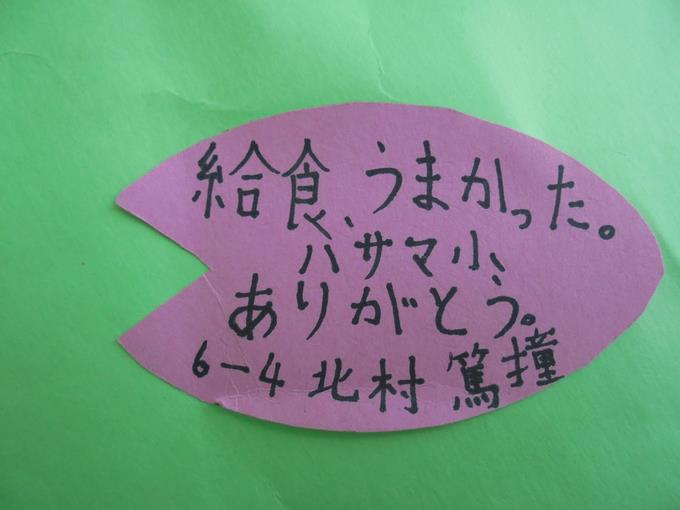 給食、うまかった。
ハサマ小、
ありがとう。
6-4 北村 篤撞